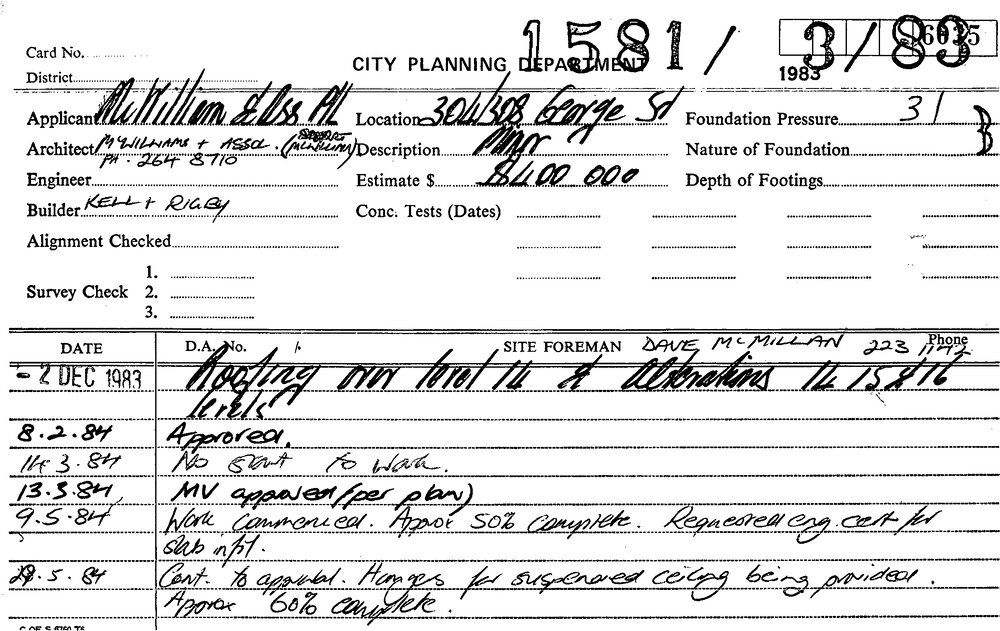 1581 / 3/83
6035
Card No.
CITY PLANNING DEPARTMENT
1983
District
Applicant McWilliam & Ass P/L Location 304/308 George St Foundation Pressure 31
Architect McWILLIAMS + ASSOC. Description Minor Nature of Foundation B
PH. 264 8710
Engineer Estimate $ $400 000 Depth of Footings
Builder KELL + RIGBY Conc. Tests (Dates)
Alignment Checked
1.
Survey Check 2.
3.
DATE D.A. No. SITE FOREMAN DAVE McMILLAN Phone 223 1142
- 2 DEC 1983 Roofing over level 14 & Alterations 14 15 & 16
levels
8.2.84 Approved.
14 3.84 No start to work.
13.3.84 MV approved (per plan)
9.5.84 Work commenced. Approx 50% complete. Requested eng. cert for
slab infil.
29.5.84 Cont. to approval. Hangers for suspended ceiling being provided.
Approx 60% complete.